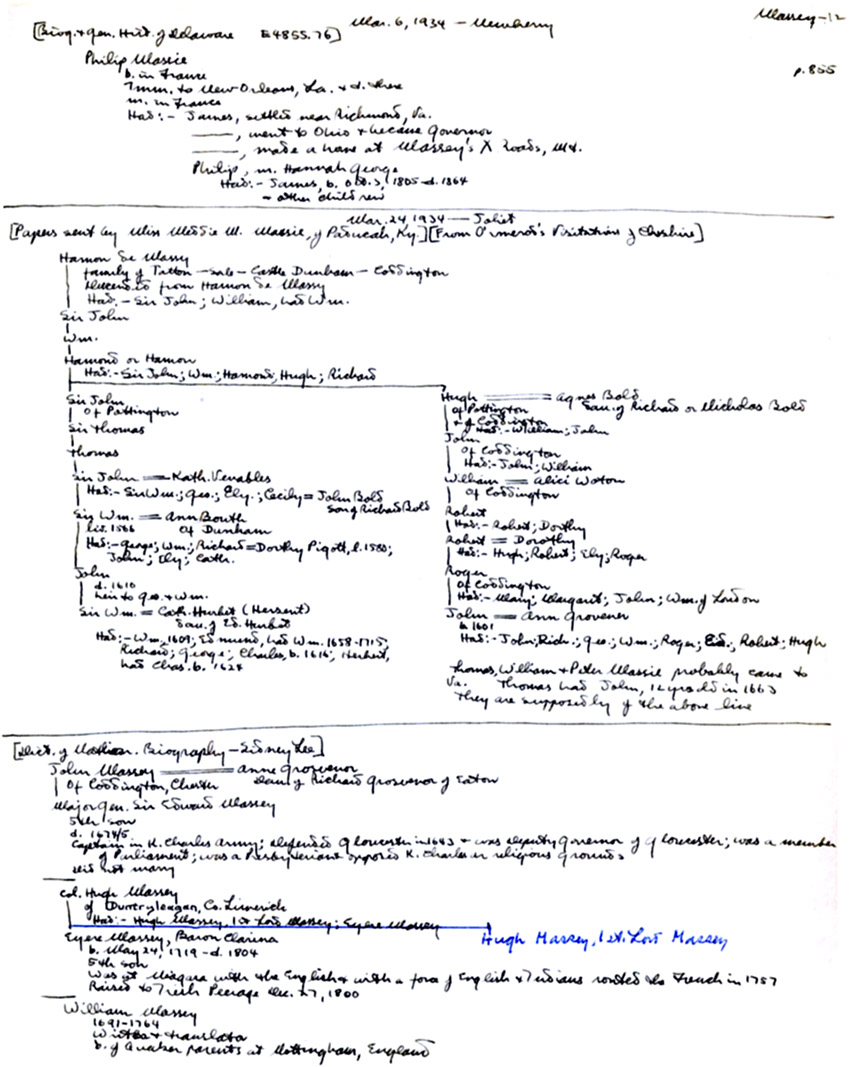 Mar. 6, 1934 — Newberry
Massey-12
[Biog. & Gen. Hist. of Delaware E4855.76]
p. 855
Philip Massie
b. in France
Imm. to New Orleans, La. & d. there
m. in France
Had:- James, settled near Richmond, Va.
———, went to Ohio & became governor
———, made a home at Massey's X Roads, Md.
Philip, m. Hannah George
Had:- James, b. 1805-d. 1864
- other children
Mar. 24 1934 — Joliet
[Papers sent by Miss Meddie M. Massie, of Paducah, Ky.] [From Ormerod's Visitations of Cheshire]
Hamon de Massy
family of Tatton — Sale — Castle Dunham — Coddington
descended from Hamon de Massy
Had:- Sir John; William, had Wm.
Sir John
Wm.
Hamond or Hamon
Had:- Sir John; Wm.; Hamond; Hugh; Richard
Sir John
of Pottington
Sir Thomas
Thomas
Sir John == Kath. Venables
Had:- Sir Wm.; Geo.; Ely.; Cecily = John Bold
son of Richard Bold
Sir Wm. == Ann Booth
liv. 1566 of Dunham
Had:- George; Wm.; Richard = Dorthy Pigott, l. 1580;
John; Ely; Cath.
John
d. 1610
heir to Geo. & Wm.
Sir Wm. = Cath. Hurbet (Herbert)
dau. of Ed. Hurbet
Had:- Wm., 1609; Edmund, had Wm. 1658-1715;
Richard; George; Charles, b. 1616; Herbert,
had Chas. b. 1624
Hugh ==== Agnes Bold
of Pottington dau. of Richard or Nicholas Bold
& of Coddington
Had:- William; John
John
of Coddington
Had:- John; William
William ==== Alici Woton
of Coddington
Robert
Had:- Robert; Dorthy
Robert == Dorothy
Had:- Hugh; Robert; Ely; Roger
Roger
of Coddington
Had:- Mary; Margarit; John; Wm. of London
John == Ann Grovener
b. 1601
Had:- John; Rich.; Geo.; Wm.; Roger; Ed., Robert; Hugh
Thomas, William & Peter Massie probably came to
Va. Thomas had John, 12 yrs old in 1663
They are supposedly of the above line
[Dict. of Nation. Biography - Sidney Lee]
John Massey ==== Anne Grosvenor
of Coddington, Chester Dau. of Richard Grosvenor of Eaton
Major Gen. Sir Edward Massey
5th son
d. 1674/5
Captain in K. Charles army; defended Gloucester in 1643 & was deputy governor of Gloucester; was a member
of Parliament; was a Presbyterian & opposed K. Charles on religious grounds
Did not marry
Col. Hugh Massey
of Duntryleagan, Co. Limerick
Had:- Hugh Massey, 1st Lord Massey; Eyere Massey
Hugh Massey, 1st. Lord Massey
Eyere Massey, Baron Clarina
b. May 24, 1719 - d. 1804
5th son
Was at Niagara with the English & with a force of English & Indians routed the French in 1757
Raised to Irish Peerage Dec. 27, 1800
William Massey
1691-1764
Writer & translator
b. of Quaker parents at Nottingham, England